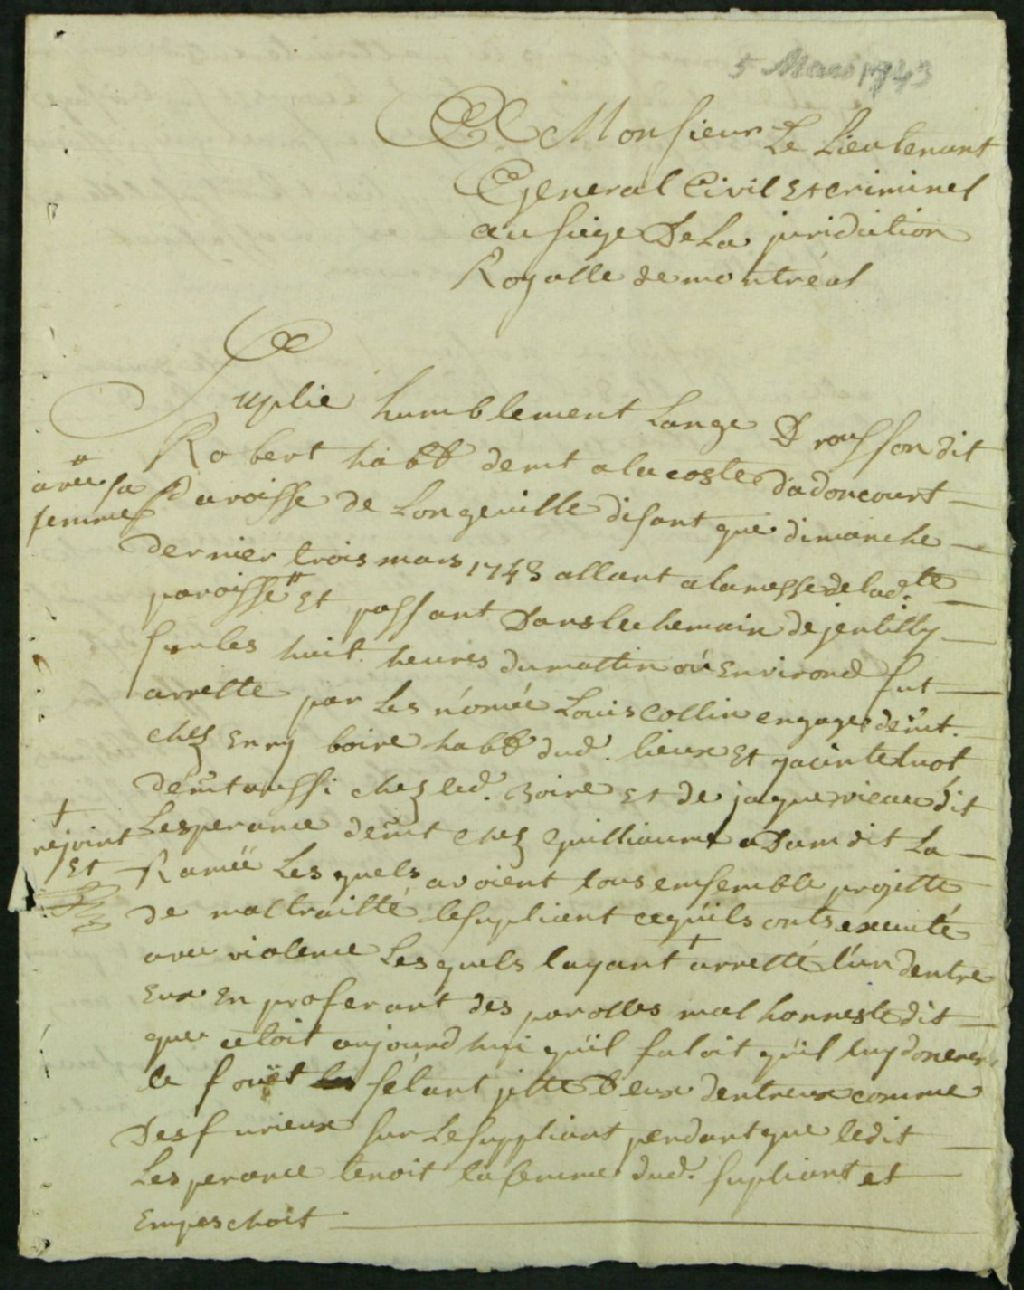 5 Mars 1743
A Monsieur Le Lieutenant
General Civil Et criminel
au siege De La juridiction
Royalle de montréal
Suplie humblement Lange Drousson dit
Robert habtt demt a la coste dadoncourt
avec sa
femme
Paroisse de Longeuille disant que dimanche
dernier trois mars 1743 allant a la messe de lad.te
paroisse # Et passant Dans le chemain de jentilly
sur les huit heures du mattin où Environd fut
arrette par Les nómée Louis Collin engages demt.
chez Enry boire habtt dud. lieux Et jacinte
demt aussi chez led. Boire Et de jaque vieau dit
+
rejoint
Et
Lesperance demt chez Guilliaume adam dit La
Ramée Les quels avoient tous ensemble projetté
de maltraitté le supliant ce qu'ils onts executé
avec violence Les quels layant + arretté l'un dentre
Eux En proferant des parolles mal honneste dit
que cetoit aujourd huy quil faloit quil luy donner
le fouët sélant jette Deux dentreux comme
Des furieux sur Le suppliant pendant que ledit
Lesperance tenoit la femme dud. supliant et
Empeschoit